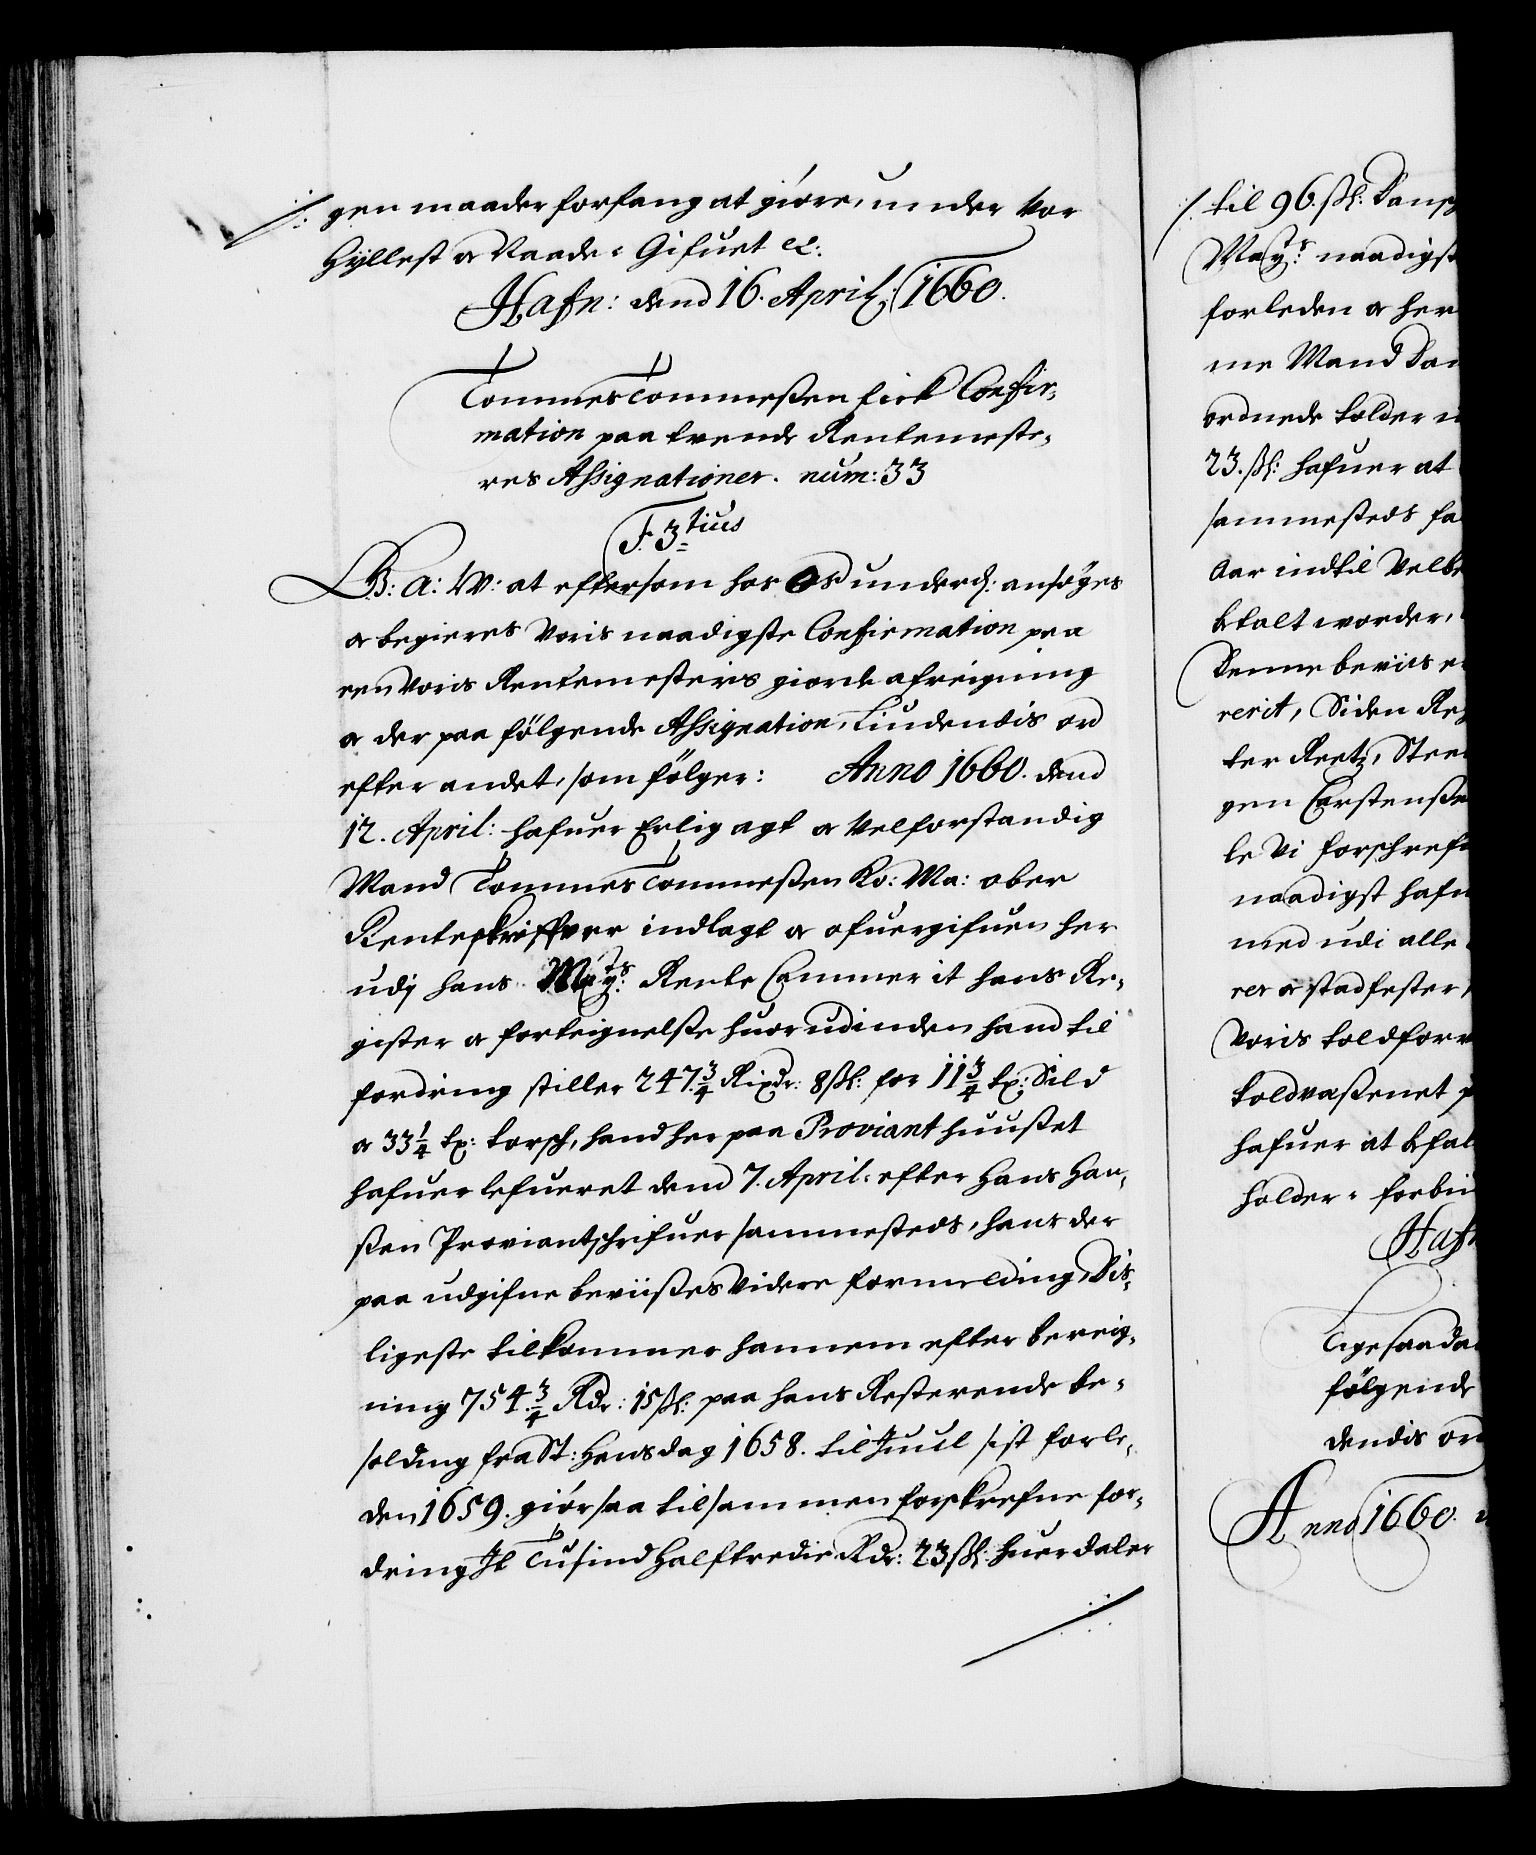 /. gen maader forfang at giøre, under Vor
Hyllest oc Naade: Gifuet etc:
Hafn: dend 16. April: 1660.
Tommes Tommeßen fick Confir-
mation paa tvende Rentemeste-
res Assignationer. num: 33
F. 3tius
G: A: W: at eftersom hos Os underd: ansøges
oc begieres Voris naadigste Confirmation paa
een Voris Rentemesteris giorde afreigning
oc der paa følgende Assignation, Liudendis ord
efter andet, som følger: Anno 1660. dend
12. April: hafuer Erlig agt oc Velforstandig
Mand Tommes Tommeßen Ko: Ma: ober
Renteskriffver indlagt oc ofuergifuen her
udj hans Mayts: Rente Cammer it hans Re-
gister oc forteignelße huorudinden hand til
fordring stiller 247 3/4 Rixdr: 8 ßl: for 11 3/4 tr: Sild
oc 33 1/4 tr: torsch, hand her paa Proviant huußet
hafuer lefueret dend 7. April: efter Hans Han-
ßen Proviantschrifuer sammesteds, hans der
paa udgifne beviißes Videre formelding, Dis-
ligeste tilkommer hannem efter bereig-
ning 754. 3/4 Rdr: 15 ßl: paa hans Resterende be-
solding fra St: Hansdag 1658. til Juul sist forle-
den 1659. giør saa tilsammen forskrefne for-
dring It Tusind Halftredie Rdr: 23 ßl: huer daler
/. til 96. ßl: Dansk
Mayts: naadigst
forleden oc her
me Mand Da
ordnede tolder
23. ßl: hafuer at
sammesteds fa
Aar indtil Velbe
btalt worder,
Denne beviis
rerit, Siden Reg
ter Reetz, Steen
gen Carstenße
le Vi forschrefn
naadigst hafu
med udi alle
rer oc stadfester,
Voris toldforv
toldvaßenet p
hafuer at btal
holder: forbiu
Hafn
Ligesaada
følgende
dendis ord
Anno 1660.